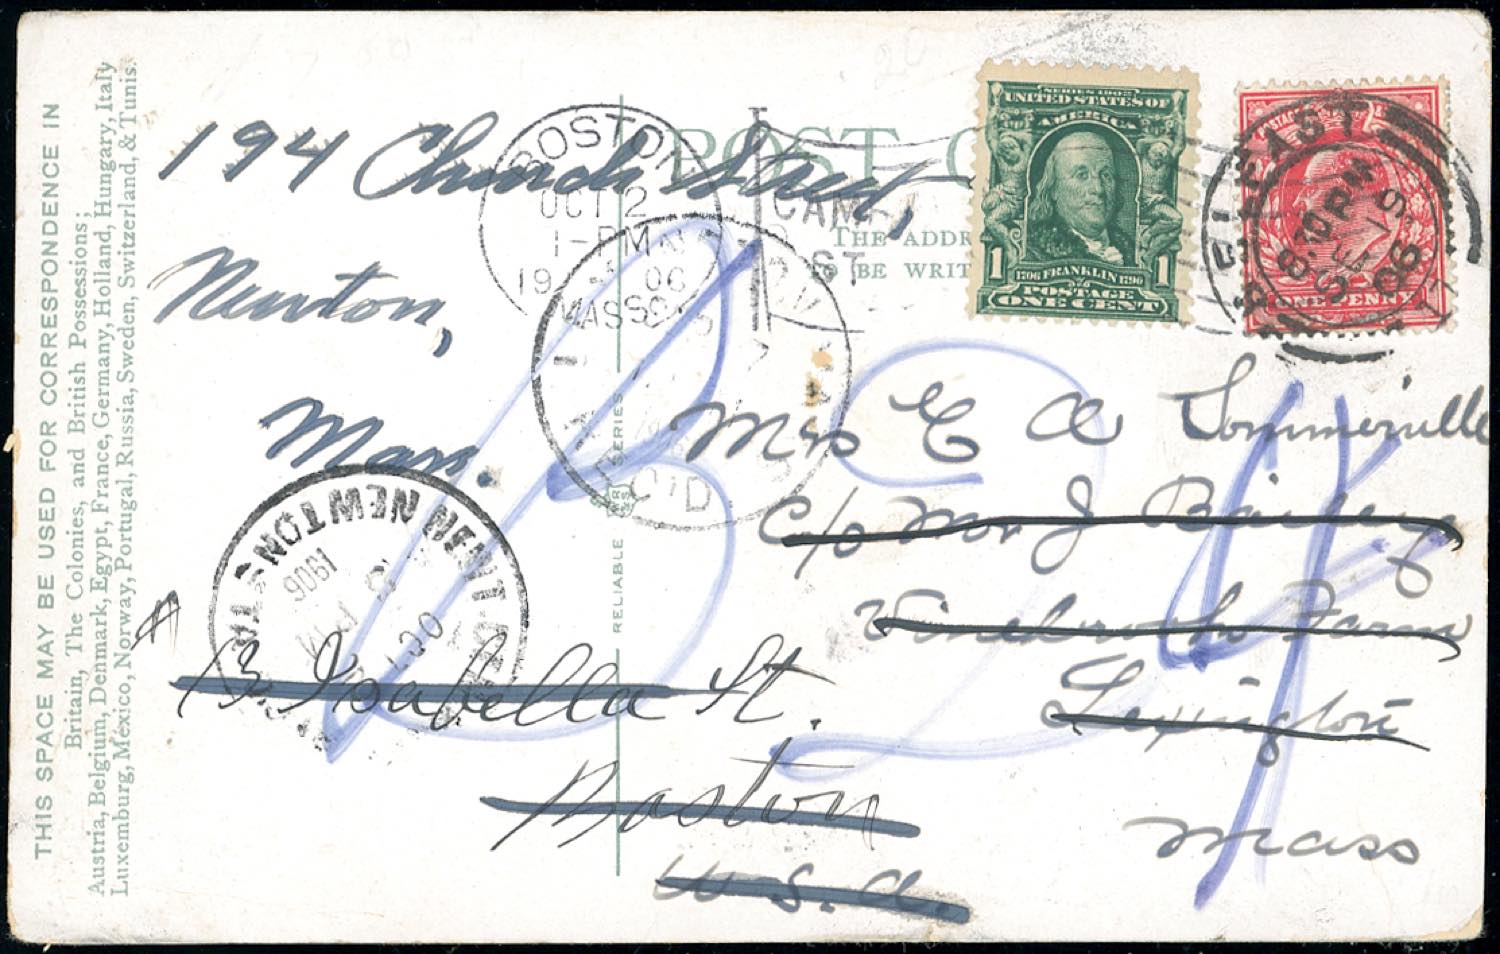 THIS SPACE MAY BE USED FOR CORRESPONDENCE IN
Britain, The Colonies, and British Possessions;
Austria, Belgium, Denmark, Egypt, France, Germany, Holland, Hungary, Italy
Luxemburg, Mexico, Norway, Portugal, Russia, Sweden, Switzerland, & Tunis.
POST C
THE ADDR
TO BE WRIT
RELIABLE SERIES
RS
SERIES 1902
UNITED STATES OF
AMERICA
1 1706 FRANKLIN 1790 1
POSTAGE
ONE CENT
POSTAGE
ONE PENNY
BELFAST
8.10PM
SE 19
06
BOSTON
OCT 2
1-PM
19 06
MASS
194 Church Street,
Newton,
Mass.
Mrs E A Sommerville
c/o Mr J
Farm
Lexington
Mass
3 Isabella St.
Boston
U.S.A.
B 24
NEWTON
1906
PM
1.30